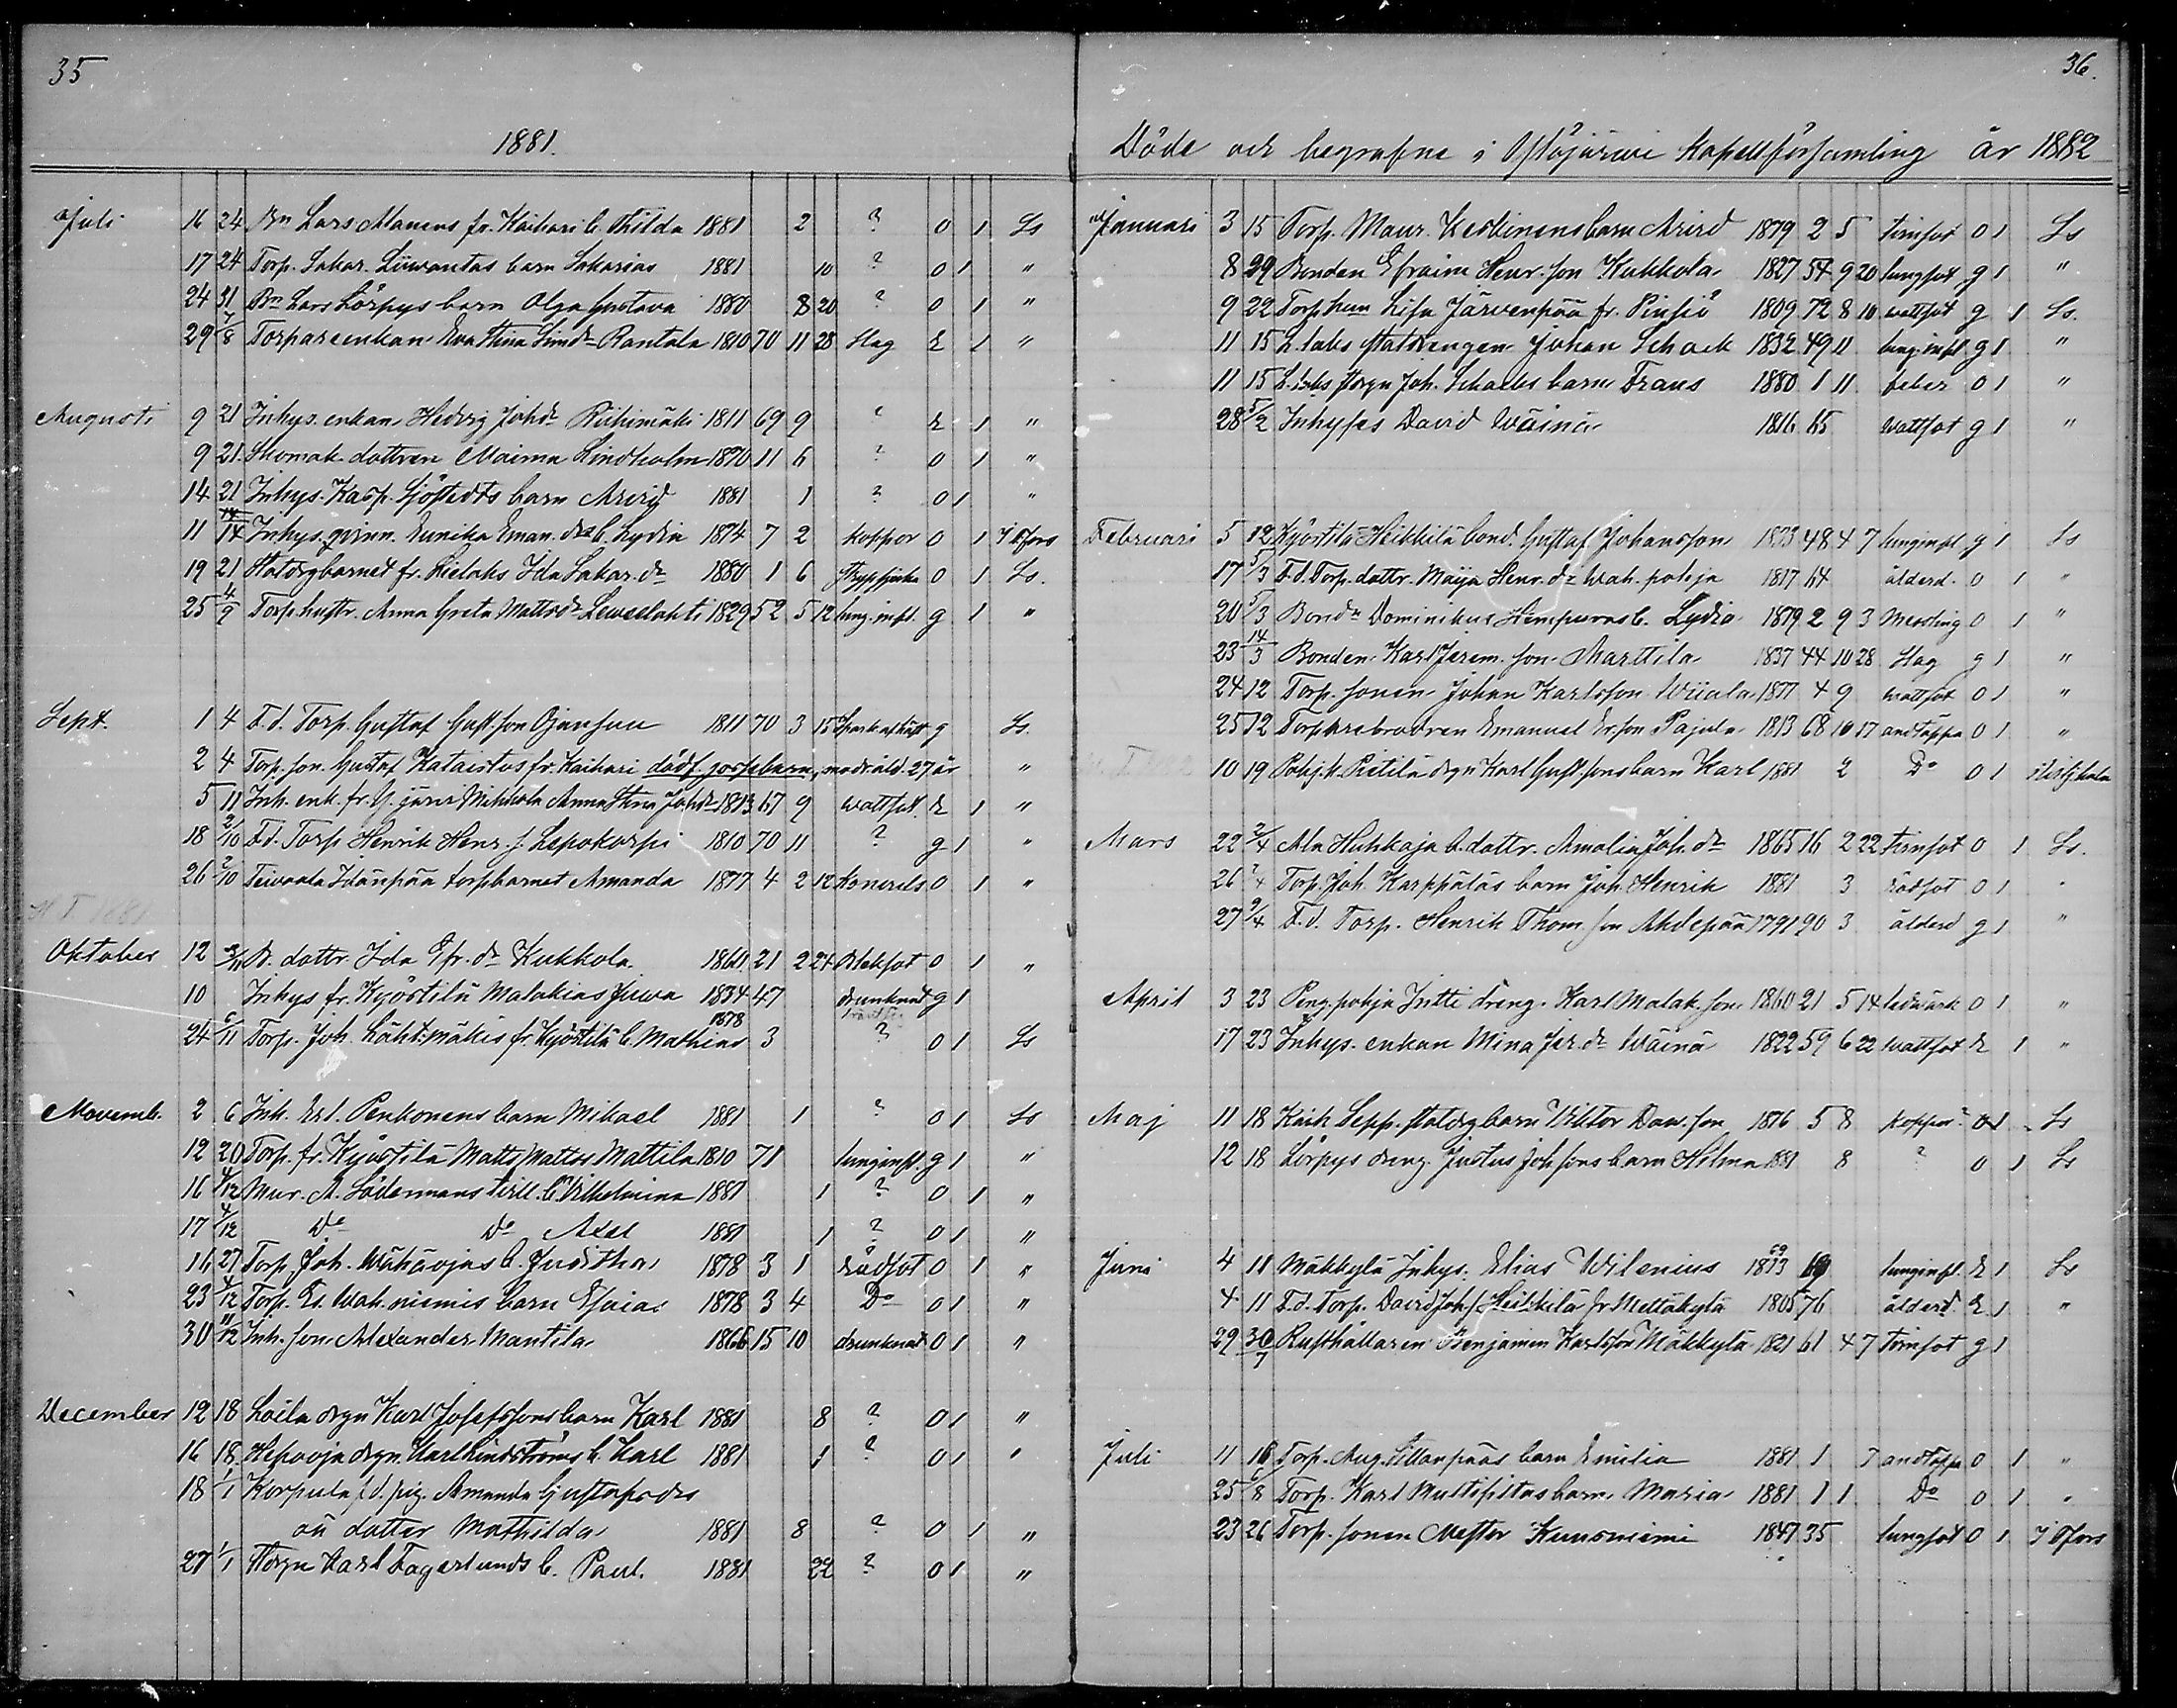 35
1881.
Juli 16 24 Bn Lars Manens fr. Kaihari b. Hilda 1881 2 ? o 1 Ls
17 24 Torp. Sakar. Liuwantas barn Sakarias 1881 10 ? o 1 "
24 31 Bn Lars Lörpys barn Olga Gustava 1880 8 20 ? o 1 "
29 7/8 Torpareenkan Eva Stina Simdr Rantala 1810 70 11 28 slag E 1 "
Augusti 9 21 Inhys. enkan Hedvig Johdr Riihimäki 1811 69 9 ? E 1 "
9 21 Skomak. dottren Maima Lindholm 1870 11 6 ? o 1 "
14 21 Inhys. Kasp. Sjöstedts barn Arvid 1881 1 ? o 1 "
11 14 Inhys. qvinn. Eunika Eman. drs b. Lydia 1874 7 2 koppor o 1 T fors
19 21 Statdrgbarnet fr. Lielaks Ida Sakar. dr 1880 1 6 strypsjuka o 1 Ls.
25 4/9 Torp.hustr. Anna Greta Mattsdr Leweelahti 1829 52 5 12 lung. infl. g 1 "
Sept. 1 4 F. d. Torp. Gustaf Gust.son Ojansuu 1811 70 3 15 g Ls.
2 4 Torp. son Gustaf Kataistos fr. Kaihari dödf. gossebarn, modr. åld. 27 år "
5 11 Inh. enk. fr. Y. järvi Mikkola Anna Stina Johdr 1813 67 9 wattsot. E 1 "
18 2/10 F.d. Torp Henrik Henr. s. Lepokorpi 1810 70 11 ? g 1 "
26 2/10 Teivaala Idänpää torpbarnet Amanda 1877 4 2 12 o 1 "
H T 1881
Oktober 12 B. dottr. Ida Efr. dr Kukkola 1860 21 2 24 Bleksot o 1 "
10 Inhys fr. Kyöstilä Malakias Juwa 1834 47 drunknat g 1
24 6/11 Torp. Joh. Lähtimäkis fr. Kyöstilä b. Mathias 1878 3 ? o 1 Ls
Novemb. 2 6 Inh. Erl. Penkonens barn Mikael 1881 1 ? o 1 Ls
12 20 Torp. fr. Kyöstilä Matts Mattss Mattila 1810 71 lunginfl. g 1 "
16 4/12 Mur. A. Södermans tvill. bn Wilhelmina 1881 1 ? o 1 "
17 4/12 Do Do Axel 1881 1 ? o 1 "
16 27 Torp. Joh. Wähäojas b. Juditha 1878 3 1 rödsot o 1 "
23 4/12 Torp. Es. Wah. niemis barn Esaias 1878 3 4 Do o 1 "
30 11/12 Inh. son Alexander Mantila 1866 15 10 drunknad o 1 "
December 12 18 Loila drgn Karl Josefssons barn Karl 1881 8 ? o 1 "
16 18 Hepooja drgn Karl Lindströms b. Karl 1881 1 ? o 1 "
18 1/1 Korpula f d. pig. Amanda Gustafsdrs
oä dotter Mathilda 1881 8 ? o 1 "
27 1/1 Stdrgn Karl Fagerlunds b. Paul. 1881 22 ? o 1 "
36.
Döde och begrafne i Ylöjärwi Kapellförsamling år 1882
Januari 3 15 Torp. Maur. Keskinens barn Arvid 1879 2 5 tvinsot o 1 Ls
8 29 Bonden Efraim Henr. son Kukkola 1827 54 9 20 lungsot g 1 "
9 22 Torp hum Lisa Järvenpää fr. Pinsiö 1809 72 8 10 wattsot g 1 Ls.
11 15 L. laks statdrengen Johan Schack 1832 49 11 lung. infl g 1 "
11 15 L. laks stdrgn Joh. Schacks barn Frans 1880 1 11 feber o 1 "
28 5/2 Inhyses David Wäinä 1816 65 wattsot g 1 "
Februari 5 12 Kyöstilä Heikkilä bond. Gustaf Johansson 1833 48 4 7 lunginfl. g 1 Ls
17 5/3 F. d. Torp. dottr. Maija Henr. dr Wah. pohja 1817 64 ålderd. o 1 "
20 5/3 Bondn Dominikus Hempuras b. Lydia 1879 2 9 3 Messling o 1 "
23 14/3 Bonden Karl Jerem. son Marttila 1837 44 10 28 slag g 1 "
24 12 Torp. sonen Johan Karlsson Wiiala 1877 4 9 wattsot o 1 "
25 12 Torparebrodren Emanuel Er.son Pajula 1813 68 10 17 andtäppa o 1 "
10 19 Pohj.k. Pietilä drgn Karl Gust. sons barn Karl 1881 2 Do o 1
Mars 22 2/4 Aln Huhkaja b. dottr. Amalia Joh. dr 1865 16 2 22 tvinsot o 1 Ls.
26 2/4 Torp. Joh. Karppäläs barn Joh. Henrik 1881 3 rödsot o 1 "
27 9/4 F. d. Torp. Henrik Thom. son Ahdepää 1791 90 3 ålderd g 1 "
April 3 23 Peng. pohja Intti dreng. Karl Malak. son 1860 21 5 14 ledwärk o 1 "
17 23 Inhys. enkan Mina Jer. dr Wäinä 1822 59 6 22 wattsot E 1 "
Maj 11 18 Kaih. Sepp. statdrg barn Viktor Dav. son 1876 5 8 koppor? o 1 Ls
12 18 Lörpys dreng. Justus Joh sons barn Hilma 1881 8 ? o 1 Ls
Juni 4 11 Mäkkylä Inhys. Elias Wilenius 1813 69 lunginfl. E 1 Ls
4 11 F.d. Torp. David Joh.s. Heikkilä fr Metsäkylä 1805 76 ålderd. E 1 "
29 30/7 Rusthållaren Benjamin Karlsson Mäkkylä 1821 61 4 7 tvinsot g 1
Juli 11 16 Torp. Aug. Sillanpääs barn Emilia 1881 1 7 andtäppa o 1 "
25 6/8 Torp. Karl Multisiltas barn Maria 1881 1 1 Do o 1 "
23 26 Torp. sonen Nestor Kuusniemi 1847 35 lungsot o 1 T fors